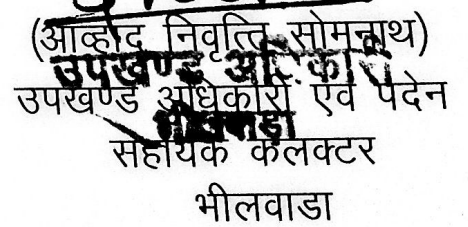 (आव्हाद निवृत्ति सोमनाथ)
उपखण्ड अधिकारी
उपखण्ड अधिकारी एवं पदेन
भीलवाड़ा
सहायक कलक्टर
भीलवाडा